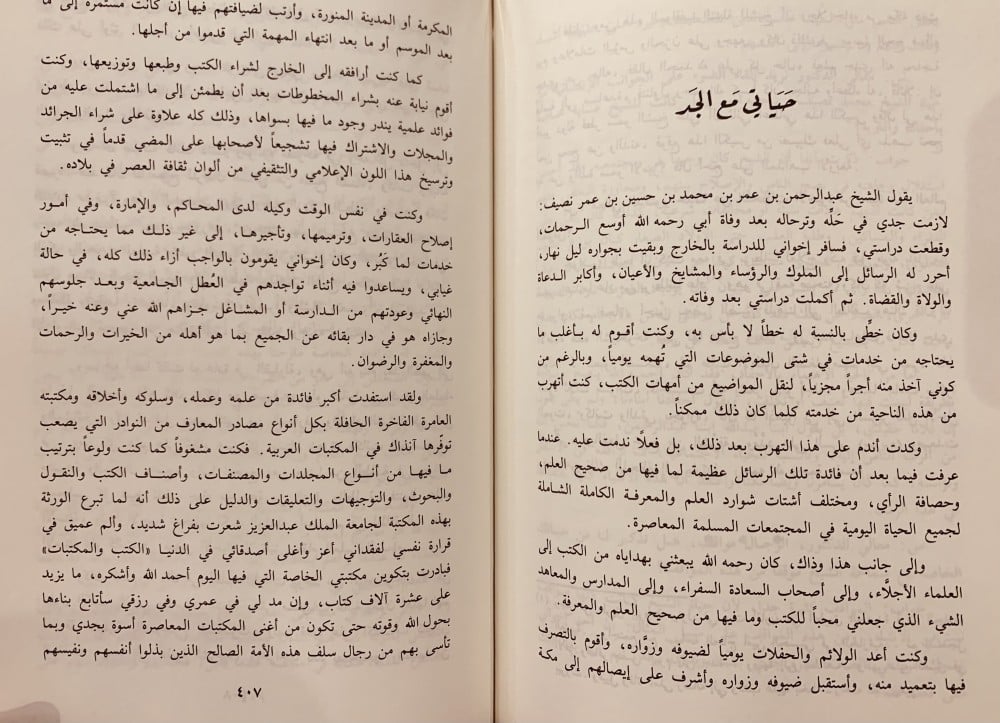 حَيَاتي مَع الجَد
يقول الشيخ عبدالرحمن بن عمر بن محمد بن حسين بن عمر نصيف:
لازمت جدي في حَلِّه وترحاله بعد وفاة أبي رحمه الله أوسع الرحمات،
وقطعت دراستي، فسافر إخواني للدراسة بالخارج وبقيت بجواره ليل نهار،
أحرر له الرسائل إلى الملوك والرؤساء والمشايخ والأعيان، وأكابر الدعاة
والولاة والقضاة. ثم أكملت دراستي بعد وفاته.
وكان خطِّى بالنسبة له خطاً لا بأس به، وكنت أقوم له بأغلب ما
يحتاجه من خدمات في شتى الموضوعات التي تُهمه يومياً، وبالرغم من
كوني آخذ منه أجراً مجزياً، لنقل المواضيع من أمهات الكتب، كنت أتهرب
من هذه الناحية من خدمته كلما كان ذلك ممكناً.
وكدت أندم على هذا التهرب بعد ذلك، بل فعلاً ندمت عليه. عندما
عرفت فيما بعد أن فائدة تلك الرسائل عظيمة لما فيها من صحيح العلم،
وحصافة الرأي، ومختلف أشتات شوارد العلم والمعرفة الكاملة الشاملة
لجميع الحياة اليومية في المجتمعات المسلمة المعاصرة.
وإلى جانب هذا وذاك، كان رحمه الله يبعثني بهداياه من الكتب إلى
العلماء الأجلَّاء، وإلى أصحاب السعادة السفراء، وإلى المدارس والمعاهد
الشيء الذي جعلني محباً للكتب وما فيها من صحيح العلم والمعرفة.
وكنت أعد الولائم والحفلات يومياً لضيوفه وزوَّاره، وأقوم بالتصرف
فيها بتعميد منه، وأستقبل ضيوفه وزواره وأشرف على إيصالهم إلى مكة
المكرمة أو المدينة المنورة، وأرتب لضيافتهم فيها إن كانت مستمرة إلى ما
بعد الموسم أو ما بعد انتهاء المهمة التي قدموا من أجلها.
كما كنت أرافقه إلى الخارج لشراء الكتب وطبعها وتوزيعها، وكنت
أقوم نيابة عنه بشراء المخطوطات بعد أن يطمئن إلى ما اشتملت عليه من
فوائد علمية يندر وجود ما فيها بسواها، وذلك كله علاوة على شراء الجرائد
والمجلات والاشتراك فيها تشجيعاً لأصحابها على المضي قدماً في تثبيت
وترسيخ هذا اللون الإعلامي والتثقيفي من ألوان ثقافة العصر في بلاده.
وكنت في نفس الوقت وكيله لدى المحاكم، والإمارة، وفي أمور
إصلاح العقارات، وترميمها، وتأجيرها، إلى غير ذلك مما يحتاجه من
خدمات لما كَبُر، وكان إخواني يقومون بالواجب أزاء ذلك كله، في حالة
غيابي، ويساعدوا فيه أثناء تواجدهم في العُطل الجامعية وبعد جلوسهم
النهائي وعودتهم من الدارسة أو المشاغل جزاهم الله عني وعنه خيراً،
وجازاه هو في دار بقائه عن الجميع بما هو أهله من الخيرات والرحمات
والمغفرة والرضوان.
ولقد استفدت أكبر فائدة من علمه وعمله، وسلوكه وأخلاقه ومكتبته
العامرة الفاخرة الحافلة بكل أنواع مصادر المعارف من النوادر التي يصعب
توفّرها آنذاك في المكتبات العربية. فكنت مشغوفاً كما كنت ولوعاً بترتيب
ما فيها من أنواع المجلدات والمصنفات، وأصناف الكتب والنقول
والبحوث، والتوجيهات والتعليقات والدليل على ذلك أنه لما تبرع الورثة
بهذه المكتبة لجامعة الملك عبدالعزيز شعرت بفراغ شديد، وألم عميق في
قرارة نفسي لفقداني أعز وأغلى أصدقائي في الدنيا «الكتب والمكتبات»
فبادرت بتكوين مكتبتي الخاصة التي فيها اليوم أحمد الله وأشكره، ما يزيد
على عشرة آلاف كتاب، وإن مد لي في عمري وفي رزقي سأتابع بناءها
بحول الله وقوته حتى تكون من أغنى المكتبات المعاصرة أسوة بجدي وبما
تأسى بهم من رجال سلف هذه الأمة الصالح الذين بذلوا أنفسهم ونفيسهم
٤٠٧